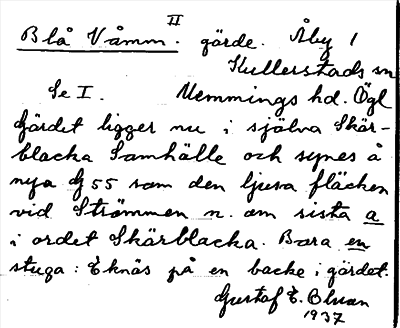 Blå Våmm. II görde. Åby 1
Kullerstads sn
Se I. Memmings hd. Ögl
Gärdet ligger nu i själva Skär-
blacka Samhälle och synes å
nya G 55 som den ljusa fläcken
vid Strömmen n. om sista a
i ordet Skärblacka. Bara en
stuga: Eknäs på en backe i gärdet.
Gustaf E.
1937